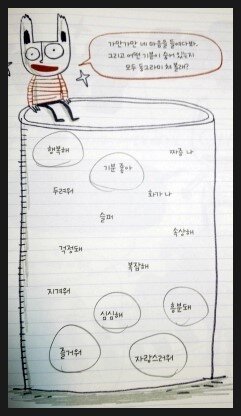 가만가만 네 마음을 들여다봐.
그리고 어떤 기분이 숨어 있는지
모두 동그라미 쳐 볼래?
행복해
기분 좋아
짜증 나
두려워
화가 나
슬퍼
속상해
걱정돼
복잡해
지겨워
심심해
흥분돼
즐거워
자랑스러워